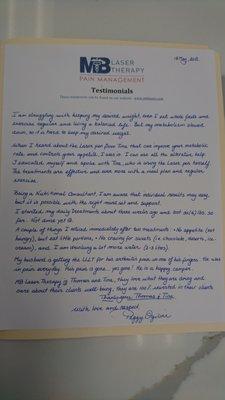 MB LASER
THERAPY
PAIN MANAGEMENT
Testimonials
I am struggling with keeping my desired weight, even I eat whole foods and
exercise regular and living a balanced life. But my metabolism slowed
down, so it is hard to keep my desired weight.
When I heard about the Laser from Tina that can improve your metabolic
rate and controls your appetite, I was in. I can use all the alternative help.
I educated myself and spoke with Tina, who is using the Laser for herself.
The treatments are effective and even more with a meal plan and regular
exercise.
Being a Nutritional Consultant, I am aware that individual results may vary,
but it is possible with the right mind set and support.
I started my daily treatments about three weeks ago and lost
far. Not done yet
A couple of things I noticed immediately after two treatments: No appetite (not
hungry), but eat little portions. No craving for sweets (ie chocolate, deserts, ice-
cream), and I am drinking a lot more water
My husband is getting the LLLT for his arthritis pain in one of his finger. He was
in pain everyday. His pain is gone.. yes gone! He is a happy camper.
MB Laser Therapy of Thomas and Tina, they love what they are doing and
care about their clients well-being, they are 100% invested in their clients
Thank you, Thomas & Tina
With love and respect
Peggy